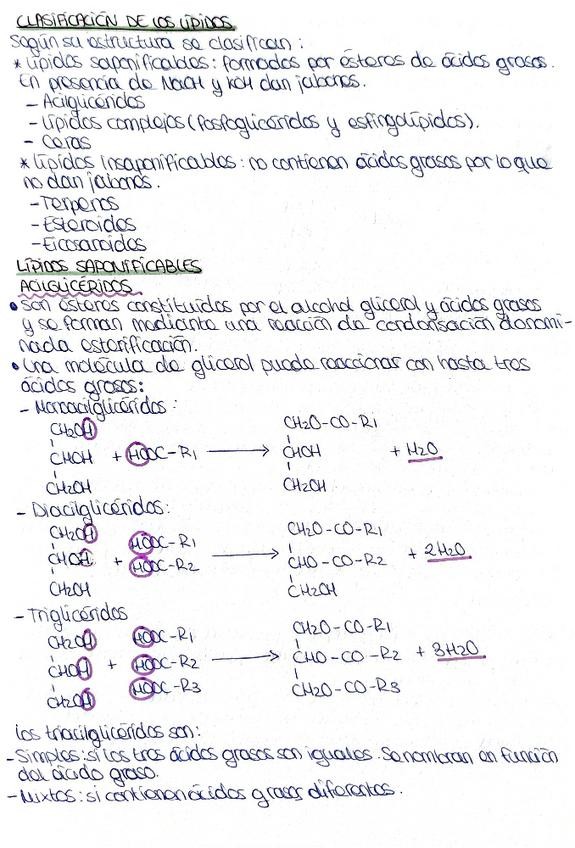 CLASIFICACIÓN DE LOS LÍPIDOS
Según su estructura se clasifican:
* Lípidos saponificables: formados por ésteres de ácidos grasos.
En presencia de NaOH y KOH dan jabones.
- Acilglicéridos
- Lípidos complejos (fosfoglicéridos y esfingolípidos).
- Ceras
* Lípidos Insaponificables: no contienen ácidos grasos por lo que
no dan jabones.
- Terpenos
- Esteroides
- Eicosanoides
LÍPIDOS SAPONIFICABLES
ACILGLICÉRIDOS
• Son ésteres constituidos por el alcohol glicerol y ácidos grasos
y se forman mediante una reacción de condensación denomi-
nada esterificación.
• Una molécula de glicerol puede reaccionar con hasta tres
ácidos grasos:
- Monoacilglicéridos:
CH2OH CH2O-CO-R1
CHOH + HOOC-R1 → CHOH + H2O
CH2OH CH2OH
- Diacilglicéridos:
CH2OH HOOC-R1 CH2O-CO-R1
CHOH + HOOC-R2 → CHO-CO-R2 + 2H2O
CH2OH CH2OH
- Triglicéridos
CH2OH HOOC-R1 CH2O-CO-R1
CHOH + HOOC-R2 → CHO-CO-R2 + 3H2O
CH2OH HOOC-R3 CH2O-CO-R3
Los triacilglicéridos son:
- Simples: si los tres ácidos grasos son iguales. Se nombran en función
del ácido graso.
- Mixtos: si contienen ácidos grasos diferentes.